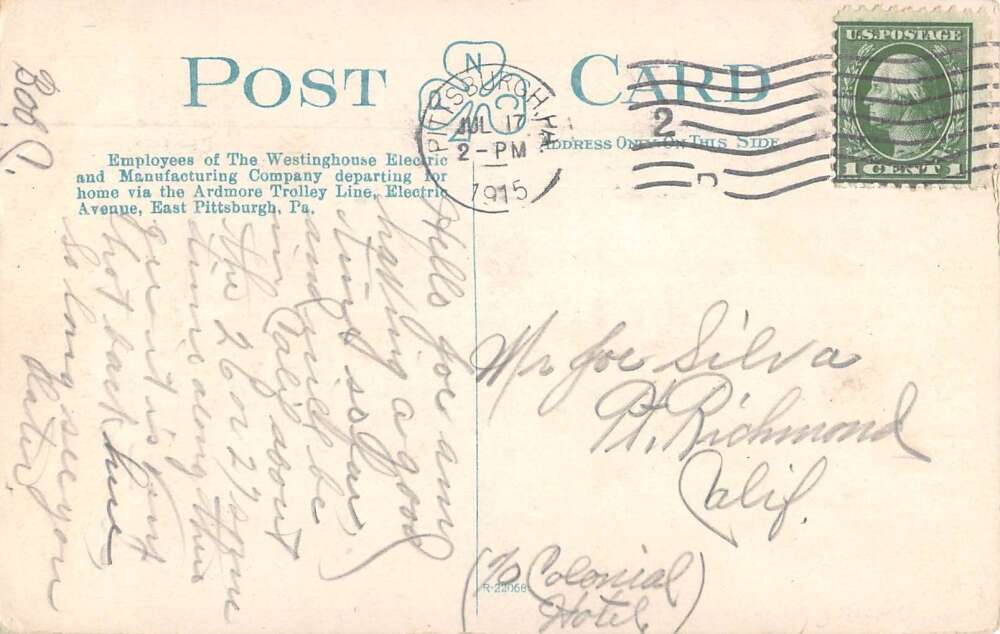 POST CARD
NCO
PITTSBURGH, PA.
JUL 17
2-PM
1915
2
U.S. POSTAGE
1 CENT 1
ADDRESS ONLY ON THIS SIDE
Employees of The Westinghouse Electric
and Manufacturing Company departing for
home via the Ardmore Trolley Line, Electric
Avenue, East Pittsburgh, Pa.
Hello Joe am
having a good
time so far
and will be
in Calif about
the 26 or 27 some
time along there
great is
hot back here
So long see you
later
Bob
Mr Joe Silva
Pt. Richmond
Calif.
(c/o Colonial
Hotel)
R-22058